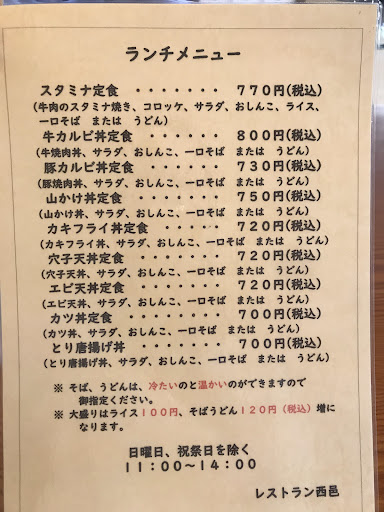 ランチメニュー
スタミナ定食 ・・・・・・・ 770円(税込)
(牛肉のスタミナ焼き、コロッケ、サラダ、おしんこ、ライス、
一口そば または うどん)
牛カルビ丼定食 ・・・・・・ 800円(税込)
(牛焼肉丼、サラダ、おしんこ、一口そば または うどん)
豚カルビ丼定食 ・・・・・・ 730円(税込)
(豚焼肉丼、サラダ、おしんこ、一口そば または うどん)
山かけ丼定食 ・・・・・・・ 750円(税込)
(山かけ丼、サラダ、おしんこ、一口そば または うどん)
カキフライ丼定食 ・・・・・ 720円(税込)
(カキフライ丼、サラダ、おしんこ、一口そば または うどん)
穴子天丼定食 ・・・・・・・ 720円(税込)
(穴子天丼、サラダ、おしんこ、一口そば または うどん)
エビ天丼定食 ・・・・・・・ 720円(税込)
(エビ天丼、サラダ、おしんこ、一口そば または うどん)
カツ丼定食 ・・・・・・・・ 700円(税込)
(カツ丼、サラダ、おしんこ、一口そば または うどん)
とり唐揚げ丼 ・・・・・・・ 700円(税込)
(とり唐揚げ丼、サラダ、おしんこ、一口そば または うどん)
※ そば、うどんは、冷たいのと温かいのができますので
御指定ください。
※ 大盛りはライス100円、そばうどん120円(税込)増に
なります。
日曜日、祝祭日を除く
11:00～14:00
レストラン西邑